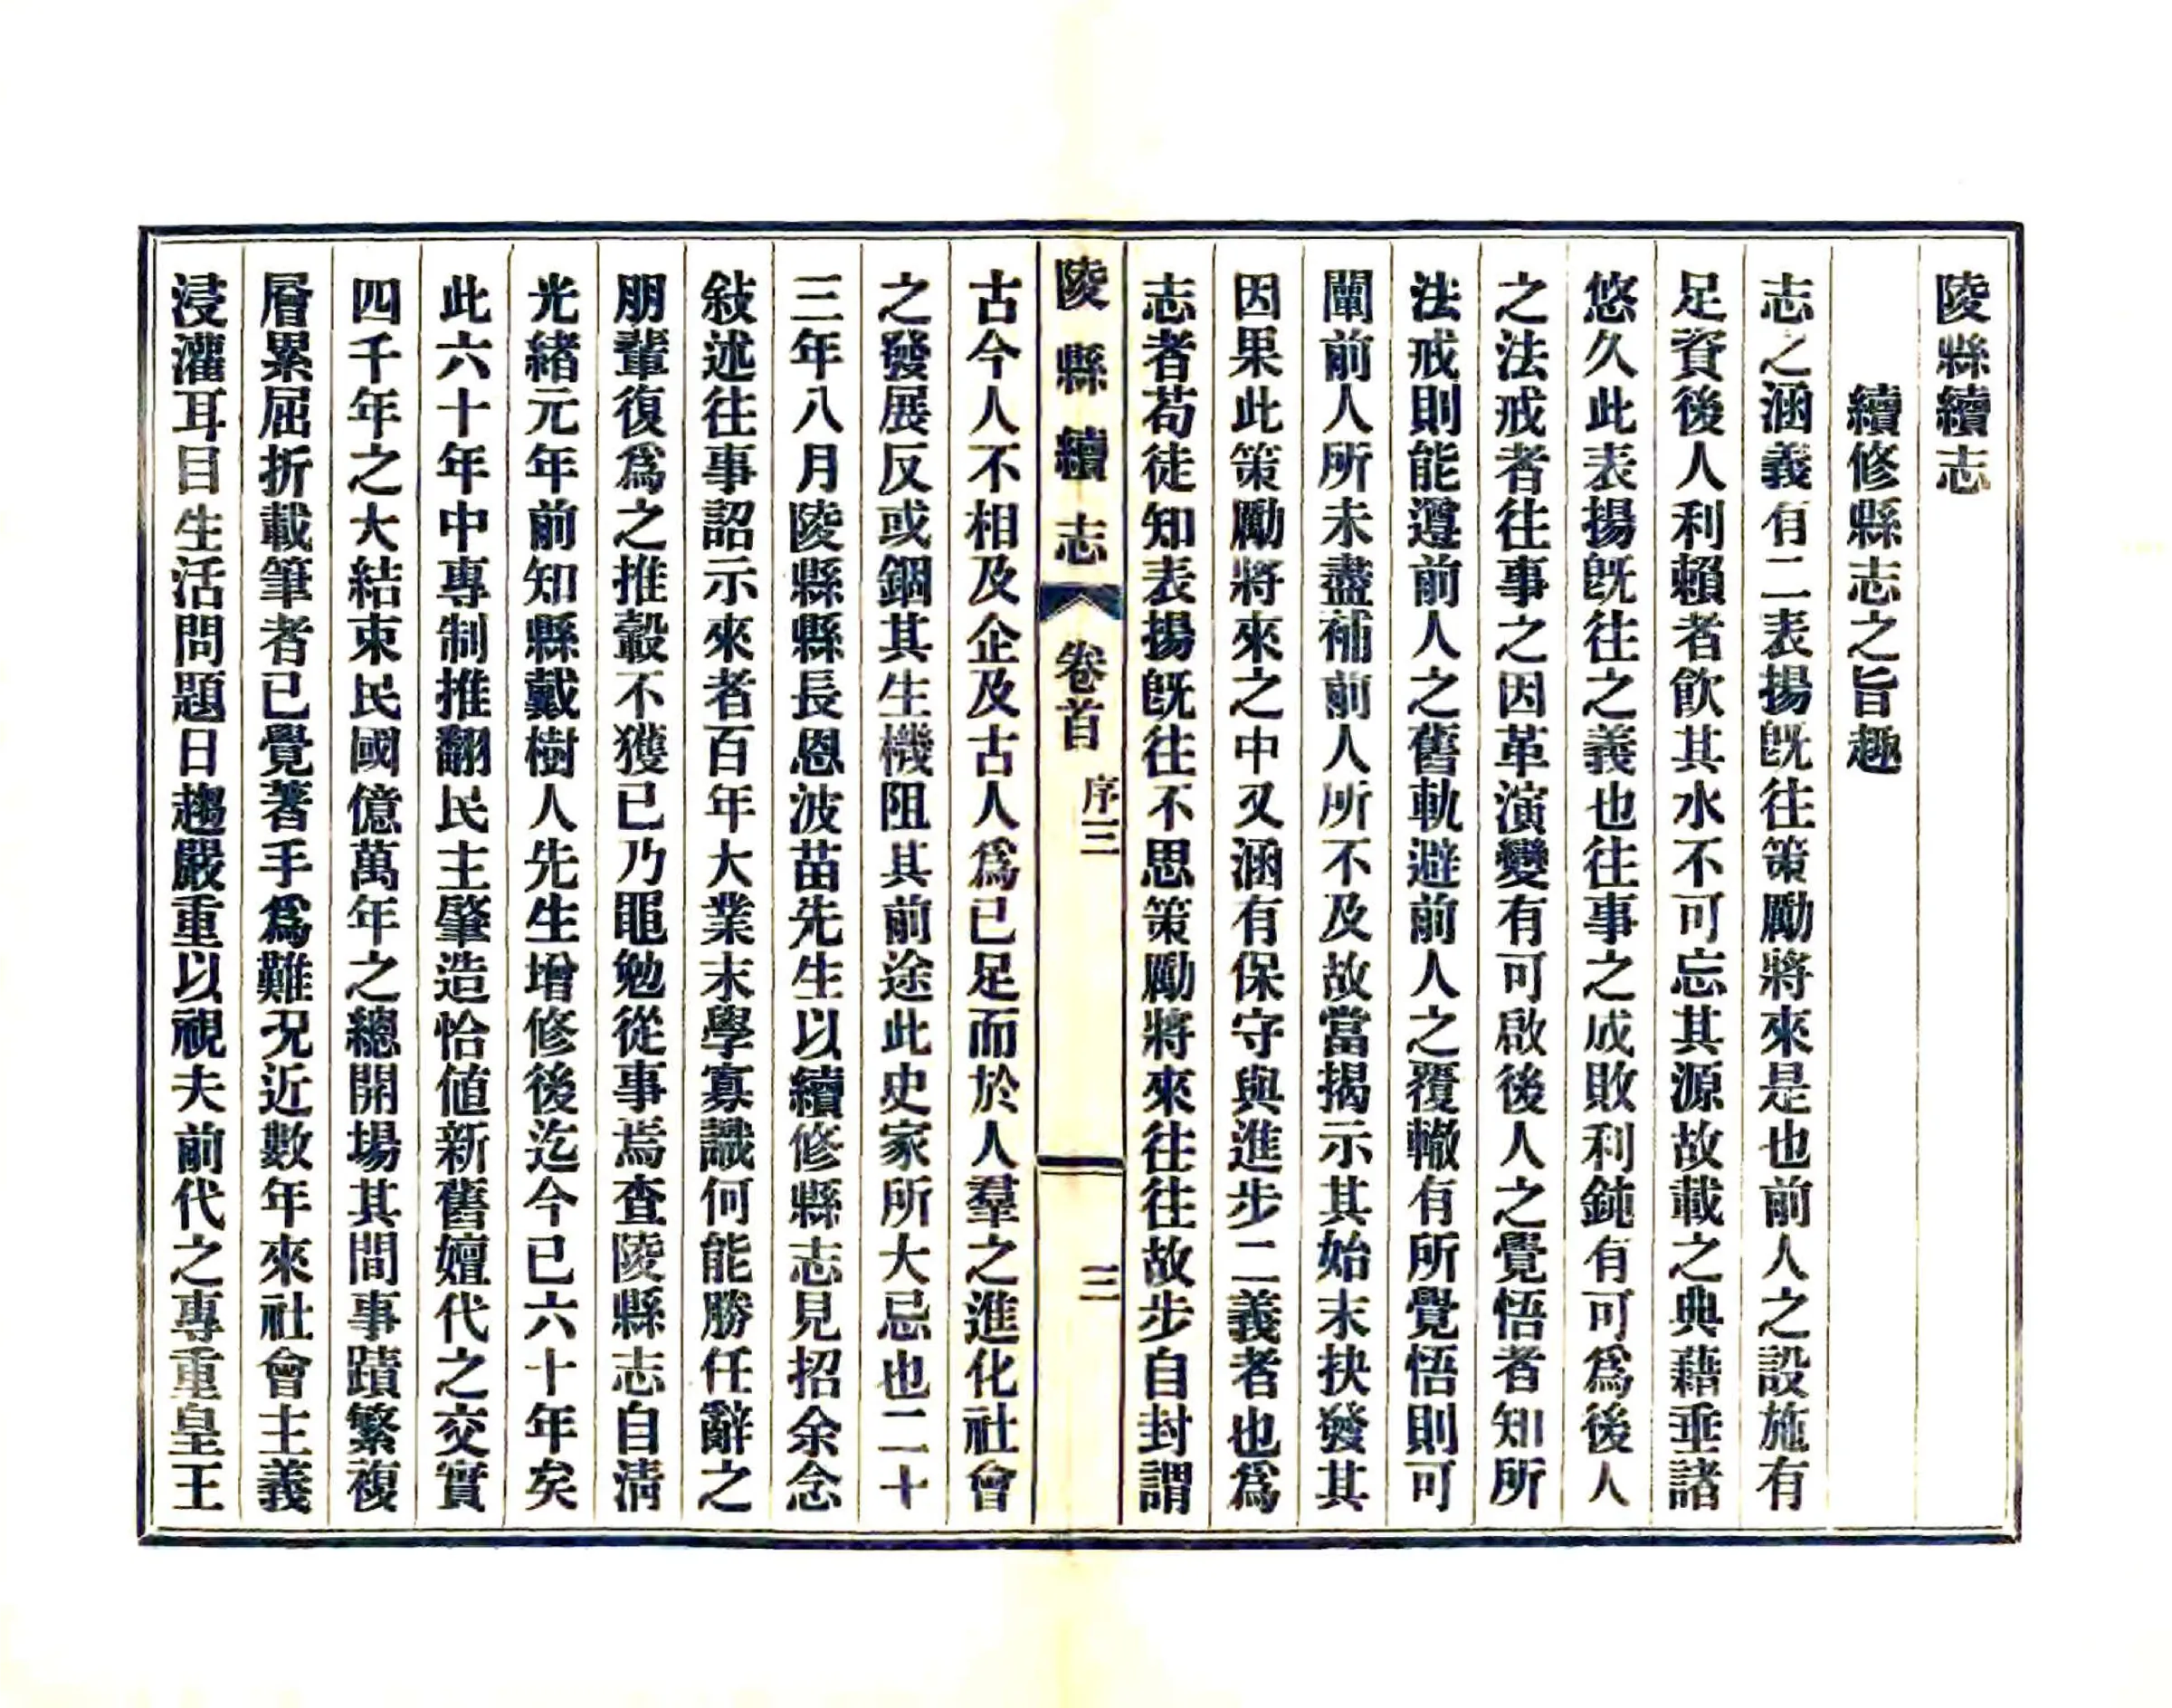 陵縣續志
續修縣志之旨趣
志之涵義有二表揚旣往策勵將來是也前人之設施有
足資後人利賴者飲其水不可忘其源故載之典藉垂諸
悠久此表揚旣往之義也往事之成敗利鈍有可爲後人
之法戒者往事之因革演變有可啟後人之覺悟者知所
法戒則能遵前人之舊軌避前人之覆轍有所覺悟則可
闡前人所未盡補前人所不及故當揭示其始末抉發其
因果此策勵將來之中又涵有保守與進步二義者也爲
志者苟徒知表揚旣往不思策勵將來往往故步自封謂
陵縣續志 卷首 序三 三
古今人不相及企及古人爲已足而於人羣之進化社會
之發展反或錮其生機阻其前途此史家所大忌也二十
三年八月陵縣縣長恩波苗先生以續修縣志見招余念
敍述往事詔示來者百年大業末學寡識何能勝任辭之
朋輩復爲之推轂不獲已乃黽勉從事焉查陵縣志自清
光緒元年前知縣戴樹人先生增修後迄今已六十年矣
此六十年中專制推翻民主肇造恰値新舊嬗代之交實
四千年之大結束民國億萬年之總開場其間事蹟繁複
層累屈折載筆者已覺著手爲難况近數年來社會主義
浸灌耳目生活問題日趨嚴重以視夫前代之專重皇王